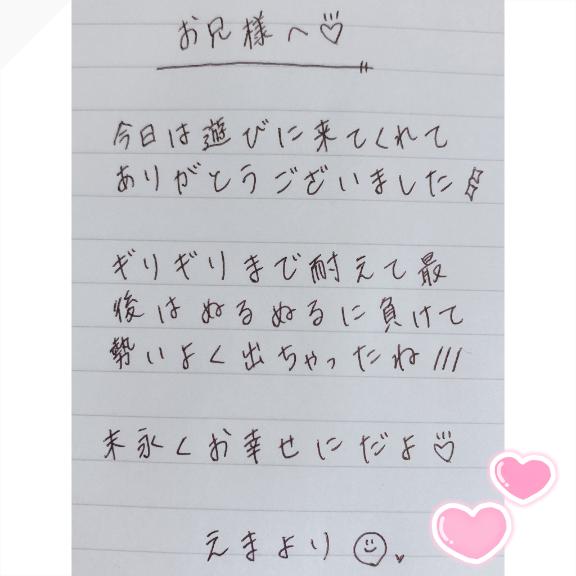 お兄様へ♡
今日は遊びに来てくれて
ありがとうございました
ギリギリまで耐えて最
後はぬるぬるに負けて
勢いよく出ちゃったね///
末永くお幸せにだよ♡
えまより